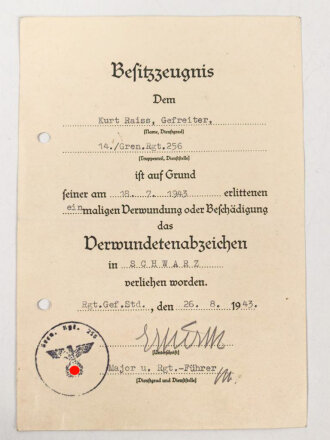 Besitzzeugnis
Dem
Kurt Raiss, Gefreiter,
(Name, Dienstgrad)
14./Gren.Rgt.256
(Truppenteil, Dienststelle)
ist auf Grund
seiner am 18. 7. 1943 erlittenen
einmaligen Verwundung oder Beschädigung
das
Verwundetenabzeichen
in SCHWARZ
verliehen worden.
Rgt.Gef.Std., den 26. 8. 1943.
(Unterschrift)
Major u. Rgt.-Führer
(Dienstgrad und Dienststelle)
Gren. Rgt. 256